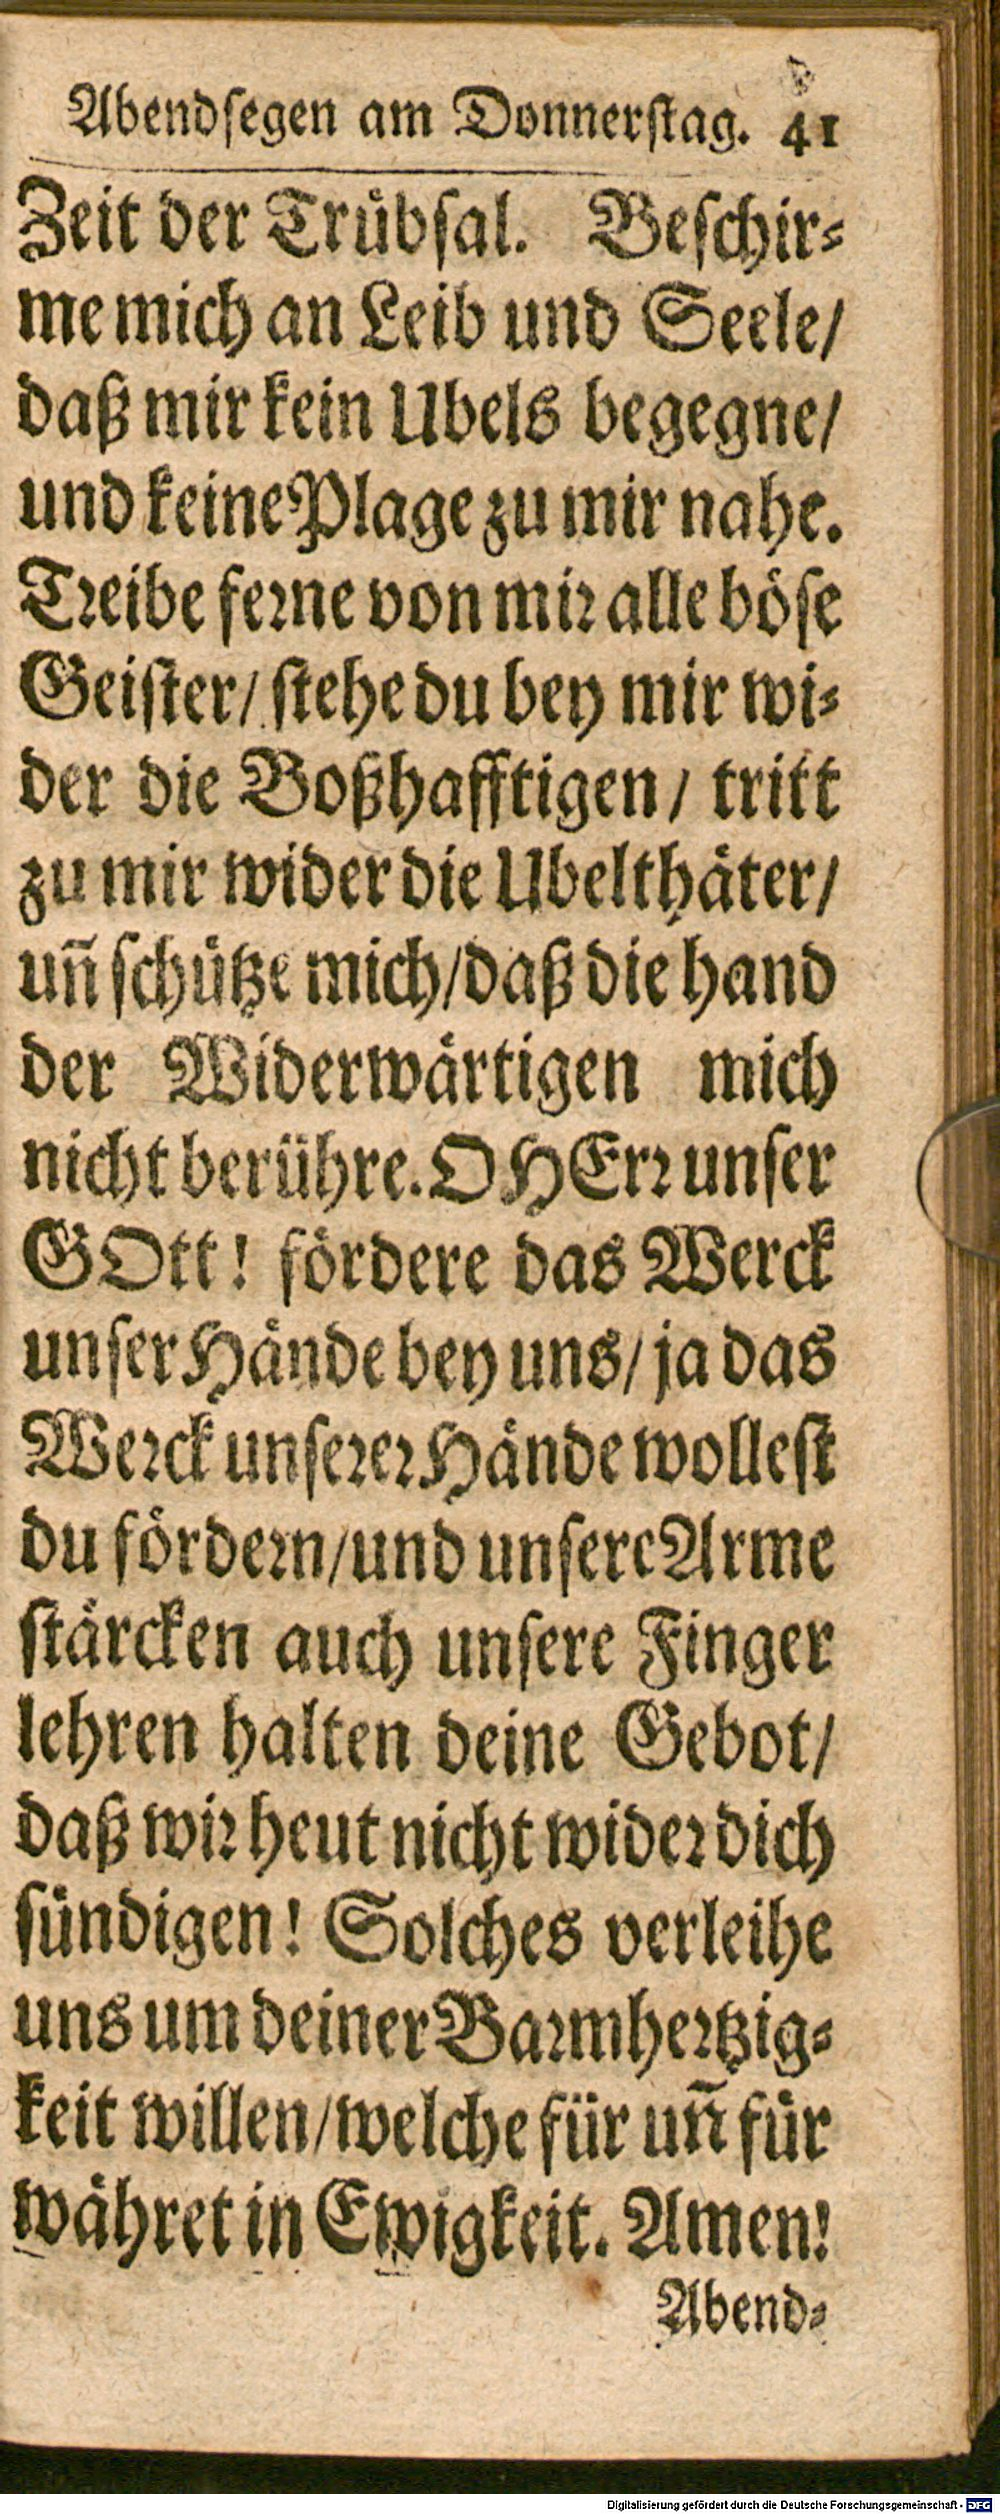 Abendſegen am Donnerſtag. 41
Zeit der Trübſal. Beſchir⸗
me mich an Leib und Seele/
daß mir kein Ubels begegne/
und keine Plage zu mir nahe.
Tꝛeibe feꝛne von miꝛ alle böſe
Geiſter/ ſtehe du bey mir wi⸗
der die Boßhafftigen/ tritt
zu mir wider die Ubelthäter/
uñ ſchütze mich/daß die hand
der Widerwärtigen mich
nicht berühre. O HErꝛ unſer
GOtt! fördere das Werck
unſer Hände bey uns/ ja das
Weꝛck unſeꝛeꝛ Hände wolleſt
du fördeꝛn/und unſere Arme
ſtärcken auch unſere Finger
lehren halten deine Gebot/
daß wiꝛ heut nicht wideꝛ dich
ſündigen! Solches verleihe
uns um deiner Baꝛmheꝛtzig⸗
keit willen/welche für uñ für
währet in Ewigkeit. Amen!
Abend⸗
Digitalisierung gefördert durch die Deutsche Forschungsgemeinschaft - DFG